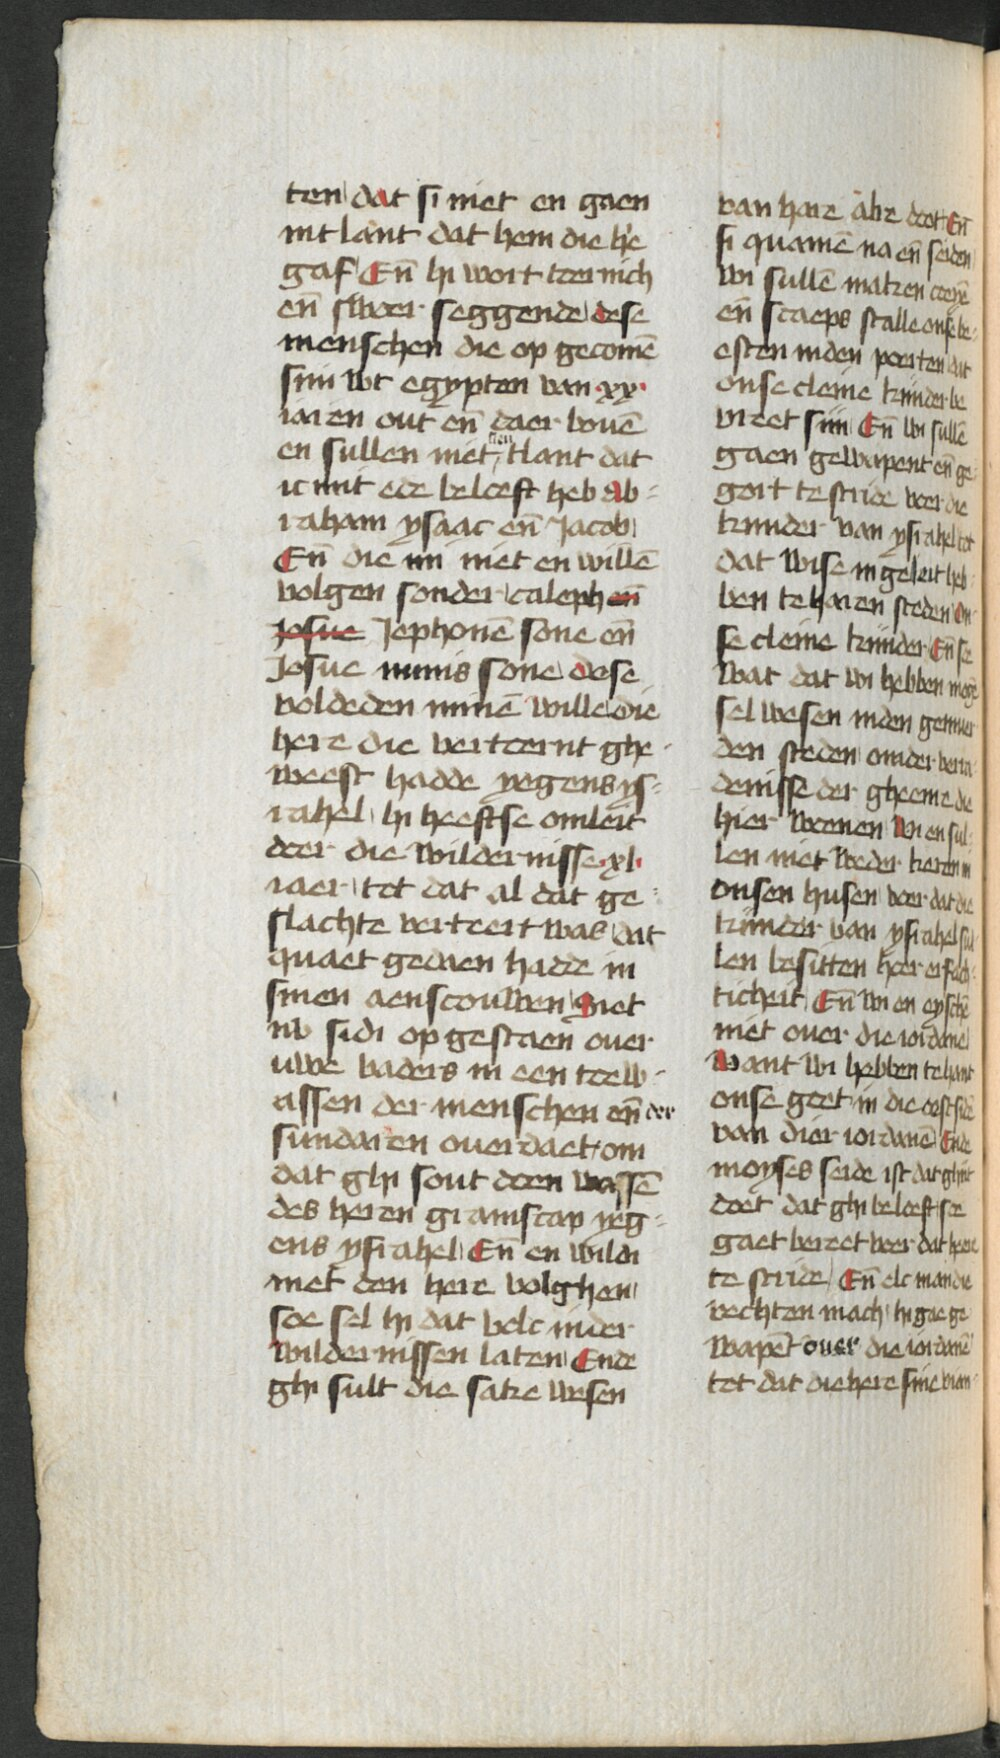 ten dat si niet en gaen
int lant dat hem die he͛e
gaf En̄ hi wort toernich
en̄ swoer seggende dese
menschen die op gecomē
sijn wt egypten van .xx.
iaren out en̄ daer bouē
en sullen niet sien tlant dat
ic mit ede beloeft heb ab⸗
raham ysaac en̄ Jacob
En̄ die mi niet en willē
volgen sonder caleph en̄
Josue Jephonē sone en̄
Josue nunis sone dese
voldeden minē wille die
here die vertoernt ghe⸗
weest hadde yegens ys⸗
rahel hi heeftse omleit
doer die wildernisse .xl.
iaer tot dat al dat ge⸗
slachte verteert was dat
quaet gedaen hadde in
sinen aenscouwen Siet
nv sidi op gestaen ouer
uwe vaders in een toew⸗
assen der menschen en̄ der
sundaren ouerdaet om
dat ghi sout doen wassē
des heren gramscap yeg⸗
ens ysrahel En̄ en wildi
niet den here volghen
soe sel hi dat volc inder
wildernissen laten Ende
ghi sult die sake wesen
van hare alre doot En̄
si quamē na en̄ seiden
wi sullē maken coeyē
en̄ scaeps stalle onse be⸗
esten inden poerten dat
onse cleine kinder be
vreet sijn En̄ wi sullē
gaen gewapent en̄ ge⸗
gort te stride voer die
kinder van ysrahel tot
dat wise in geleit heb⸗
ben te haren steden On⸗
se cleine kinder En̄ soe
wat dat wi hebben mogē
sel wesen inden gemuer
den steden om der verra⸗
denisse der gheenre die
hier woenen Wi en sul⸗
len niet weder keren in
onsen husen voer dat die
kinder van ysrahel sul⸗
len besitten hoer erfach⸗
ticheit En̄ wi en eyschē
niet ouer die iordane
Want wi hebben te hant
onse goet in die oestside
van dier iordanē Ende
moyses seide ist dat ghijt
doet dat ghi beloeft soe
gaet bereet voer dat heere
te stride En̄ elc man die
vechten mach hi gae ge
wapēt ouer die iordanē
tot dat die here sine vian⸗